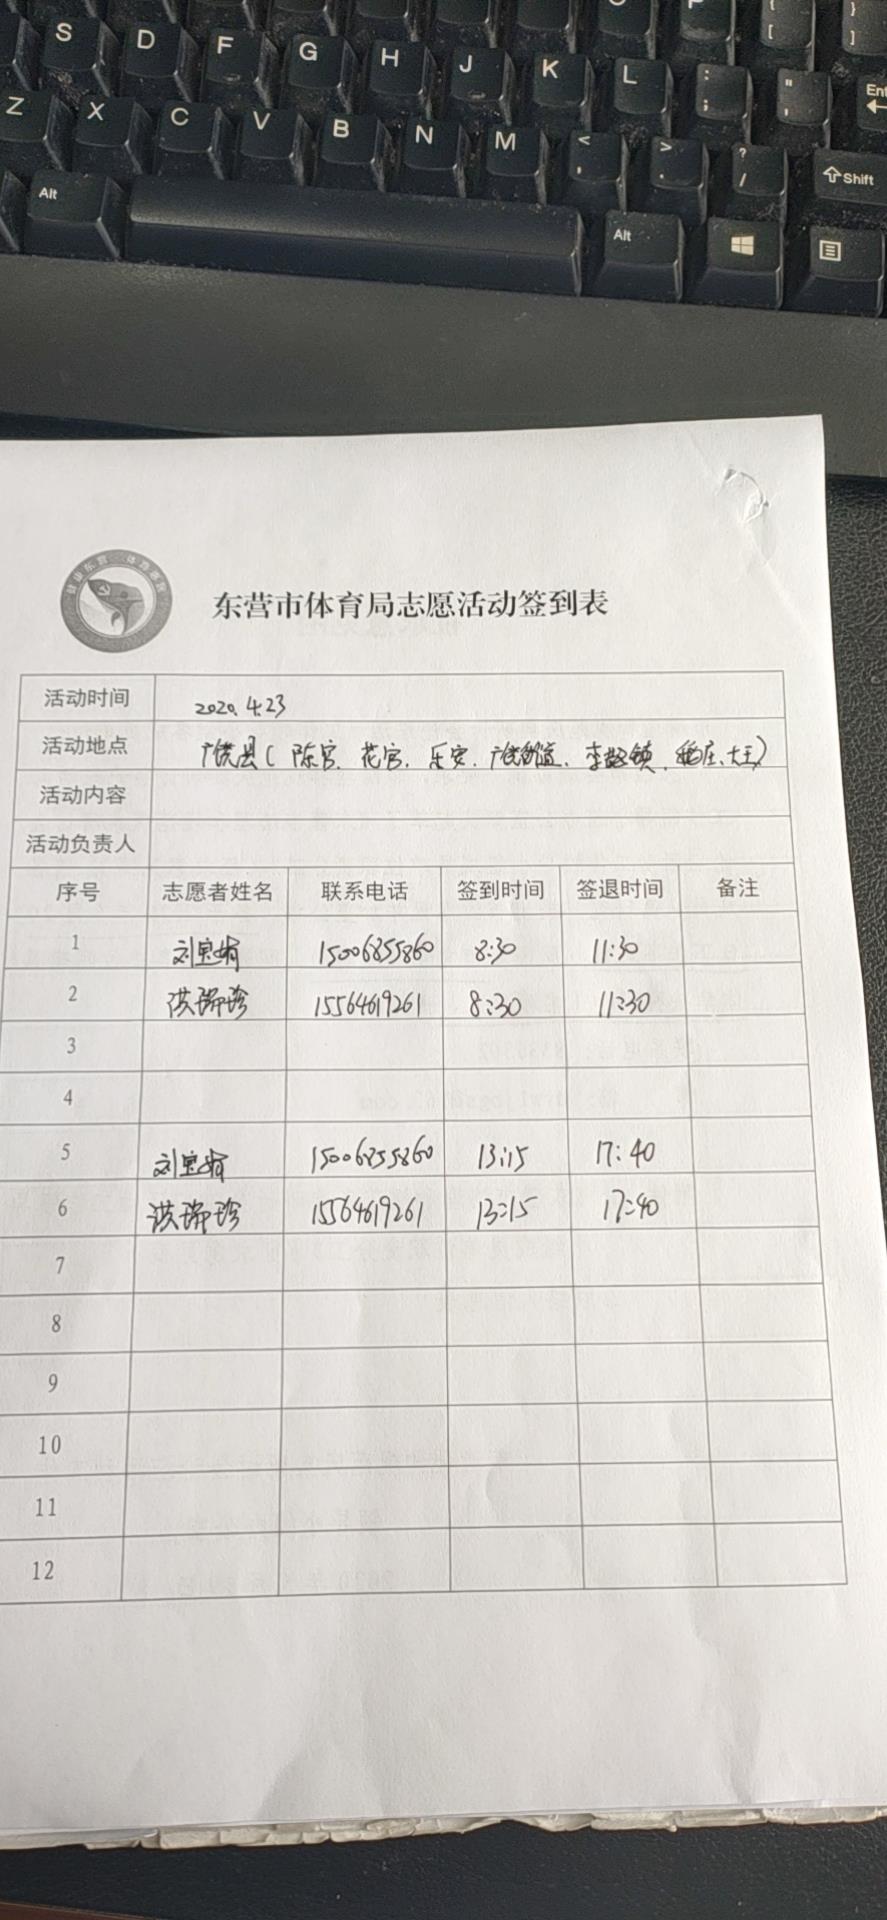 { [
} ]
S D F G H J K L : ; " ' Ent
Z X C V B N M < , > . ? / Shift
Alt Alt
东营市体育局志愿活动签到表
活动时间 2020.4.23
活动地点 广饶县(陈官、花官、乐安、广饶街道、李鹊镇、稻庄、大王)
活动内容
活动负责人
序号 志愿者姓名 联系电话 签到时间 签退时间 备注
1 刘宝娟 15006855860 8:30 11:30
2 洪瑞珍 15564619261 8:30 11:30
3
4
5 刘宝娟 15006855860 13:15 17:40
6 洪瑞珍 15564619261 13:15 17:40
7
8
9
10
11
12